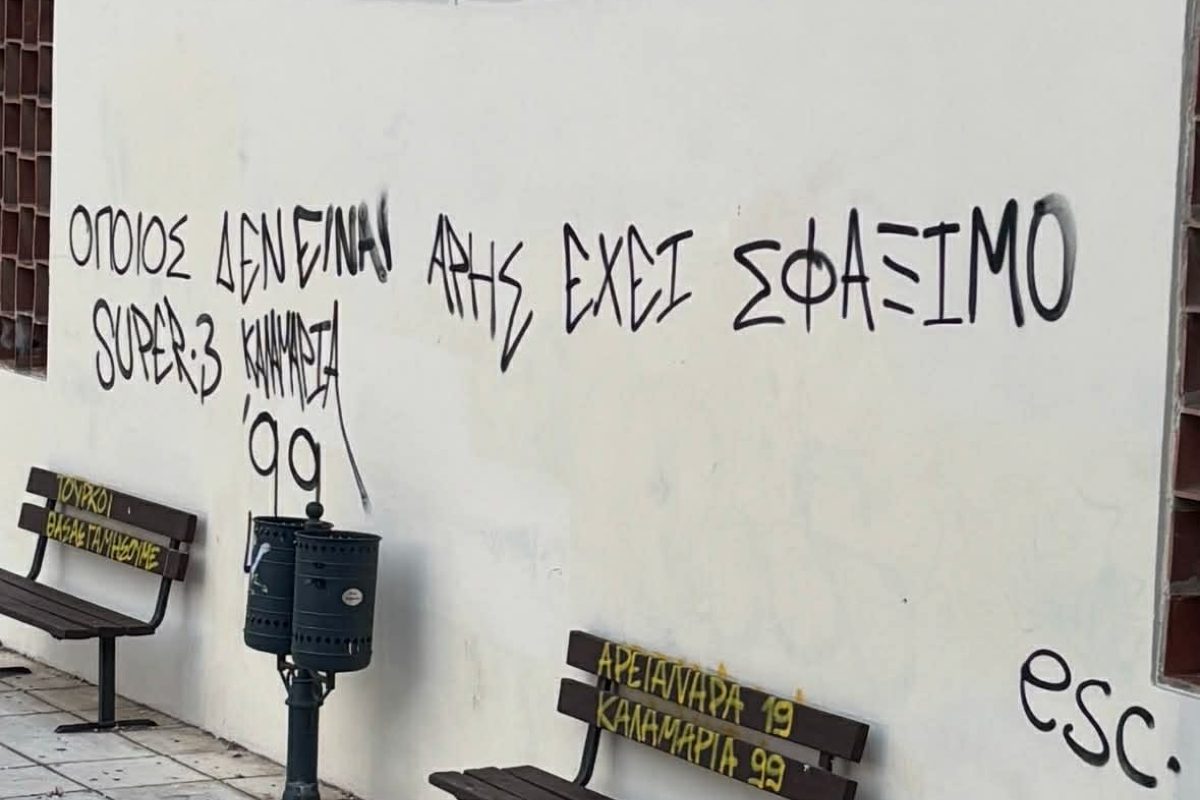 ΟΠΟΙΟΣ ΔΕΝ ΕΙΝΑΙ ΑΡΗΣ ΕΧΕΙ ΣΦΑΞΙΜΟ
SUPER·3 ΚΑΛΑΜΑΡΙΑ
'99
ΤΟΥΡΚΟΙ
ΘΑ ΣΑΣ ΓΑΜΗΣΟΥΜΕ
ΑΡΕΙΑΝΑΡΑ 19
ΚΑΛΑΜΑΡΙΑ 99
esc.